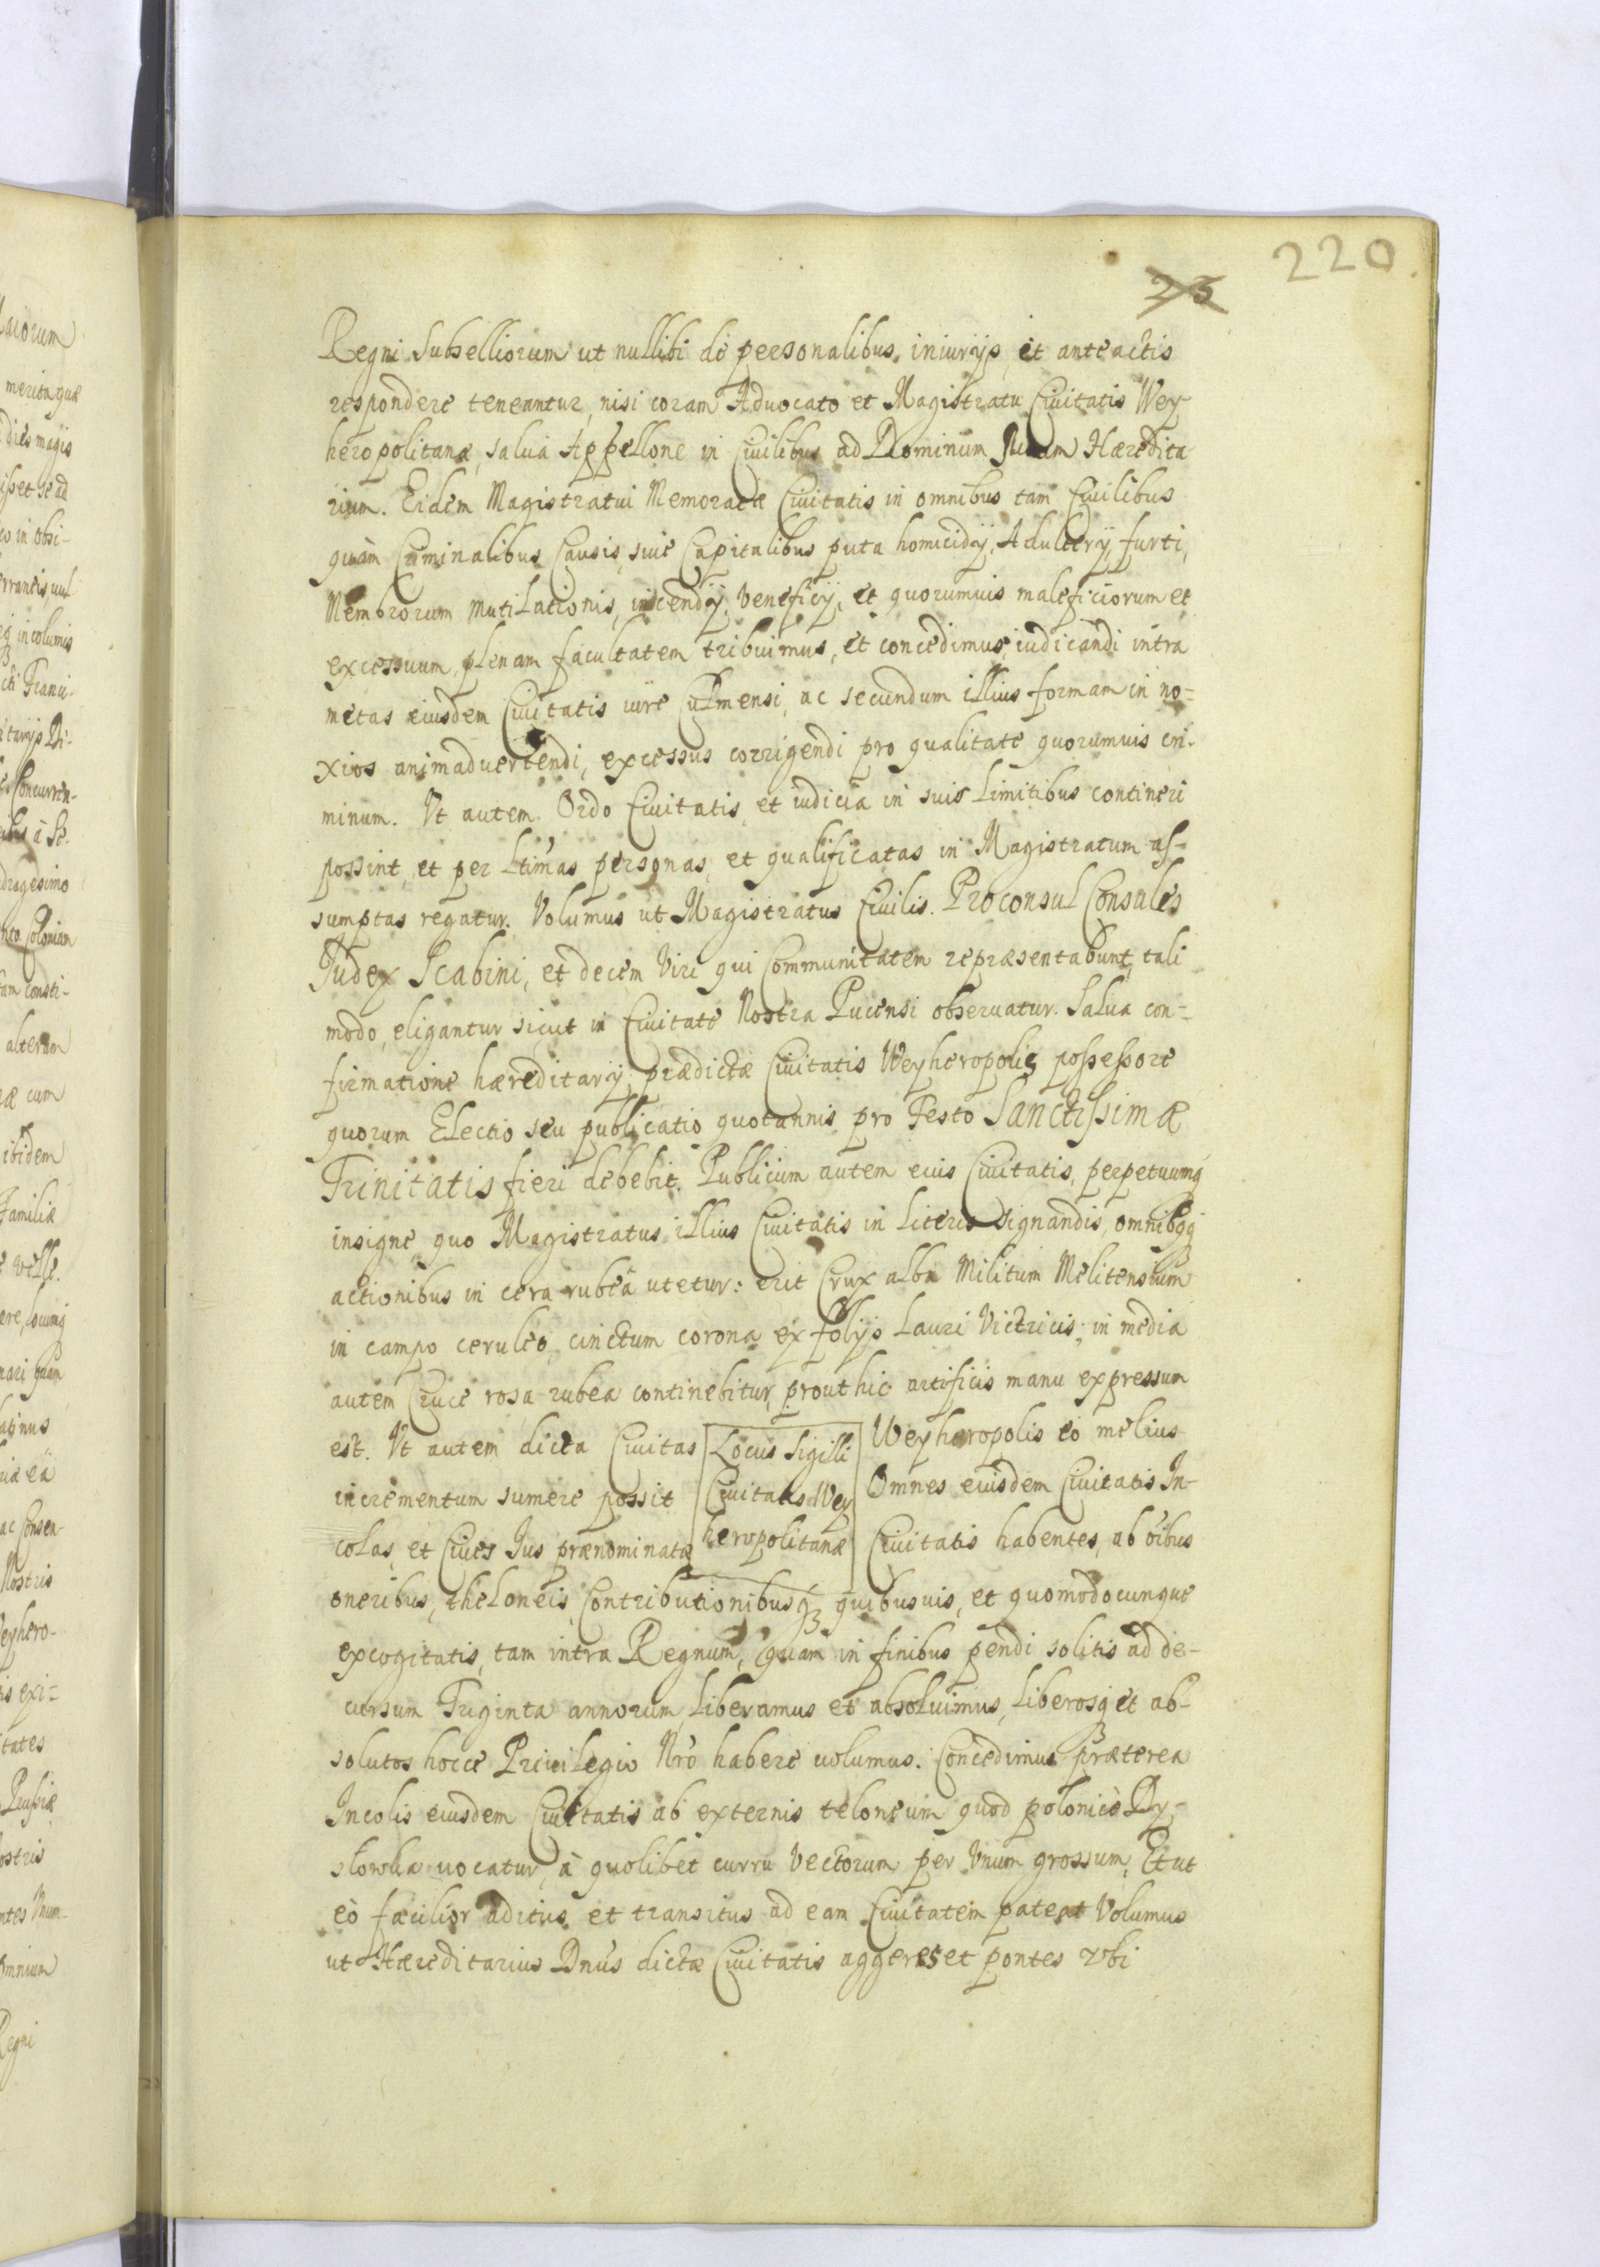 220
23
Regni Subselliorum ut nullibi de personalibus, iniurijs, et anteactis
respondere teneantur, nisi coram Aduocato et Magistratu Ciuitatis Wey
heropolitanæ, salua Appellone in Ciuilibus ad Dominum suum Hæredita
rium. Eidem Magistratui Memoratæ Ciuitatis in omnibus tam Ciuilibus
quàm Criminalibus Causis, siue Capitalibus puta homicidij, Adulterij, furti,
Membrorum mutilationis, incendij, Veneficij, et quorumuis maleficiorum et
excessuum, plenam facultatem tribuimus, et concedimus, iudicandi intra
metas eiusdem Ciuitatis iure Culmensi, ac secundum illius formam in no-
xios animaduertendi, excessus corrigendi pro qualitate quorumuis cri-
minum. Vt autem Ordo Ciuitatis, et iudicia in suis Limitibus contineri
possint, et per Ltimas personas, et qualificatas in Magistratum as-
sumptas regatur. Volumus ut Magistratus Ciuilis. Proconsul Consules
Judex Scabini, et decem Viri qui Communitatem repræsentabunt, tali
modo, eligantur sicut in Ciuitate Nostra Pucensi obseruatur. Salua con-
firmatione hæreditarij, prædictæ Ciuitatis Weyheropolis possessore
quorum Electio seu publicatio quotannis pro Festo Sanctissimæ
Trinitatis fieri debebit. Publicum autem eius Ciuitatis, perpetuumq
insigne quo Magistratus illius Ciuitatis in Literis signandis, omnibqq
actionibus in cera rubeâ utetur: erit Crux alba Militum Melitensium
in campo ceruleo, cinctum corona ex folijs Lauri Victricis, in media
autem Cruce rosa rubea continebitur, prout hic artificis manu expressum
est. Vt autem dicta Ciuitas Locus Sigilli Weyheropolis eò melius
incrementum sumere possit Ciuitatis Wey Omnes eiusdem Ciuitatis In-
colas, et Ciues Jus prænominatæ heropolitanæ Ciuitatis habentes, ab oibus
oneribus, theloneis, Contributionibusq quibusuis, et quomodocunque
excogitatis, tam intra Regnum, quam in finibus pendi solitis ad de-
cursum Triginta annorum, Liberamus et absoluimus, Liberosq et ab-
solutos hocce Priuilegio Nro habere uolumus. Concedimus præterea
Incolis eiusdem Ciuitatis ab externis teloneum quod polonicè Dy-
slowka uocatur, à quolibet curru Vectorum per Vnum grossum, Et ut
eò facilior aditus et transitus ad eam Ciuitatem pateat Volumus
ut Hæreditarius Dnus dictæ Ciuitatis aggeres et pontes vbi